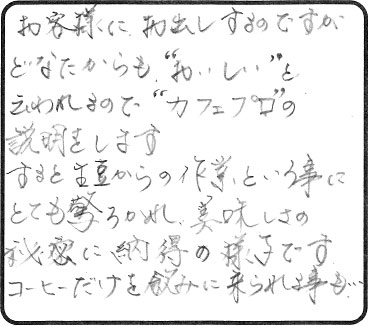 お客様に、お出しするのですが
どなたからも、“おいしい”と
云われるので“カフェプロ”の
説明をします
すると生豆からの作業という事に
とても驚ろかれ、美味しさの
秘密に納得の様子です。
コーヒーだけを飲みに来られる事も…